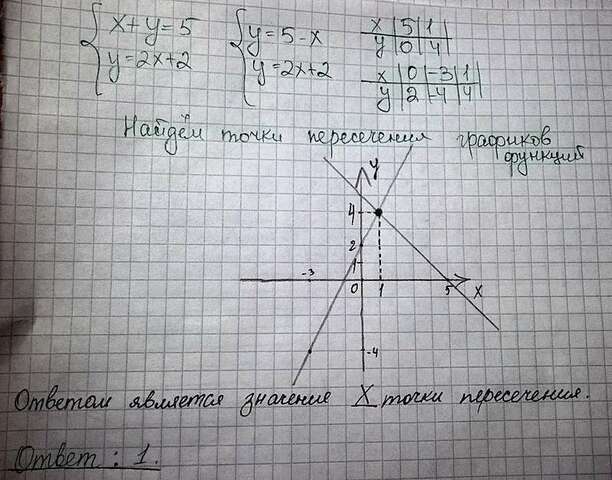 { x+y=5
y=2x+2
{ y=5-x
y=2x+2
x | 5 | 1
y | 0 | 4
x | 0 | -3 | 1
y | 2 | -4 | 4
Найдём точки пересечения графиков
функций
y
4
2
1
-3
0
1
5
x
-4
Ответом является значение X точки пересечения.
Ответ : 1.